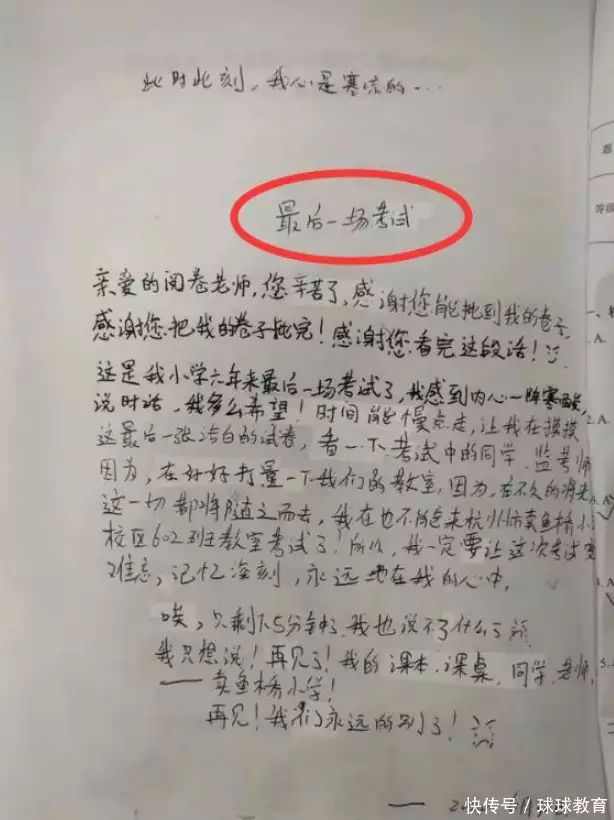 此时此刻，我心是寒凉的…
最后一场考试
亲爱的阅卷老师，您辛苦了，感谢您能批到我的卷子，
感谢您把我的卷子批完！感谢您看完这段话！
这是我小学六年来最后一场考试了，我感到内心一阵寒酸，
说时话，我多么希望！时间能慢点走，让我在摸摸
这最后一张洁白的试卷，看一下考试中的同学、监考师
因为，在好好打量一下我们的教室，因为，在不久的将来
这一切都将随之而去，我在也不能来杭州师卖鱼桥小
校区602班教室考试了！所以，我一定要让这次考试变
难忘，记忆深刻，永远地在我的心中。
唉，只剩下5分钟了，我也说不了什么了
我只想说！再见了！我的课本、课桌、同学、老师，
——卖鱼桥小学！
再见！我们永远的别了！
题
等级
一、
A.
2.A.
A.
5.
二
快传号／球球教育